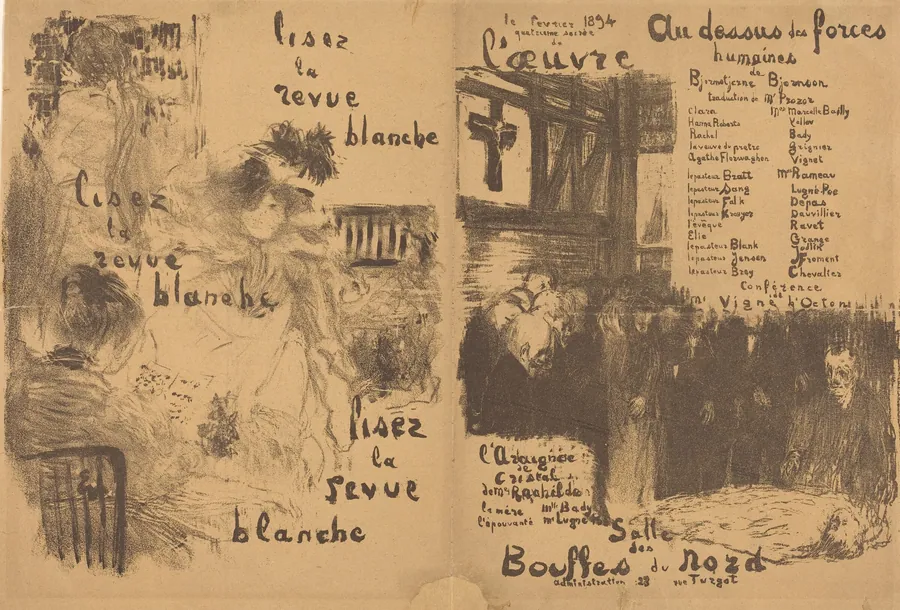 lisez
la
revue
blanche
lisez
la
revue
blanche
lisez
la
revue
blanche
le fevrier 1894
quatrieme soirée
de
l'œuvre
Au dessus des forces
humaines
de
Bjornstjerne Bjornson
traduction de Mr Prozor
Clara Mme Marcelle Bailly
Hanna Roberts
Rachel Bady
la veuve du pretre Grignier
Agathe Florwaghen Vignet
le pasteur Bratt Mr Rameau
le pasteur Sang Lugné-Poe
le pasteur Falk Depas
le pasteur Kroyer Dauvillier
l'évêque Ravet
Elie Grange
le pasteur Blank
le pasteur Jensen Froment
le pasteur Brey Chevalier
Conférence
de
Mr Vigné d'Octon
l'Araignée
de
Cristal
de Mme Rachilde
la mère Mlle Bady
l'épouvanté mr Lugné-Poe
Salle
des
Bouffes du Nord
administration : 23 rue Turgot